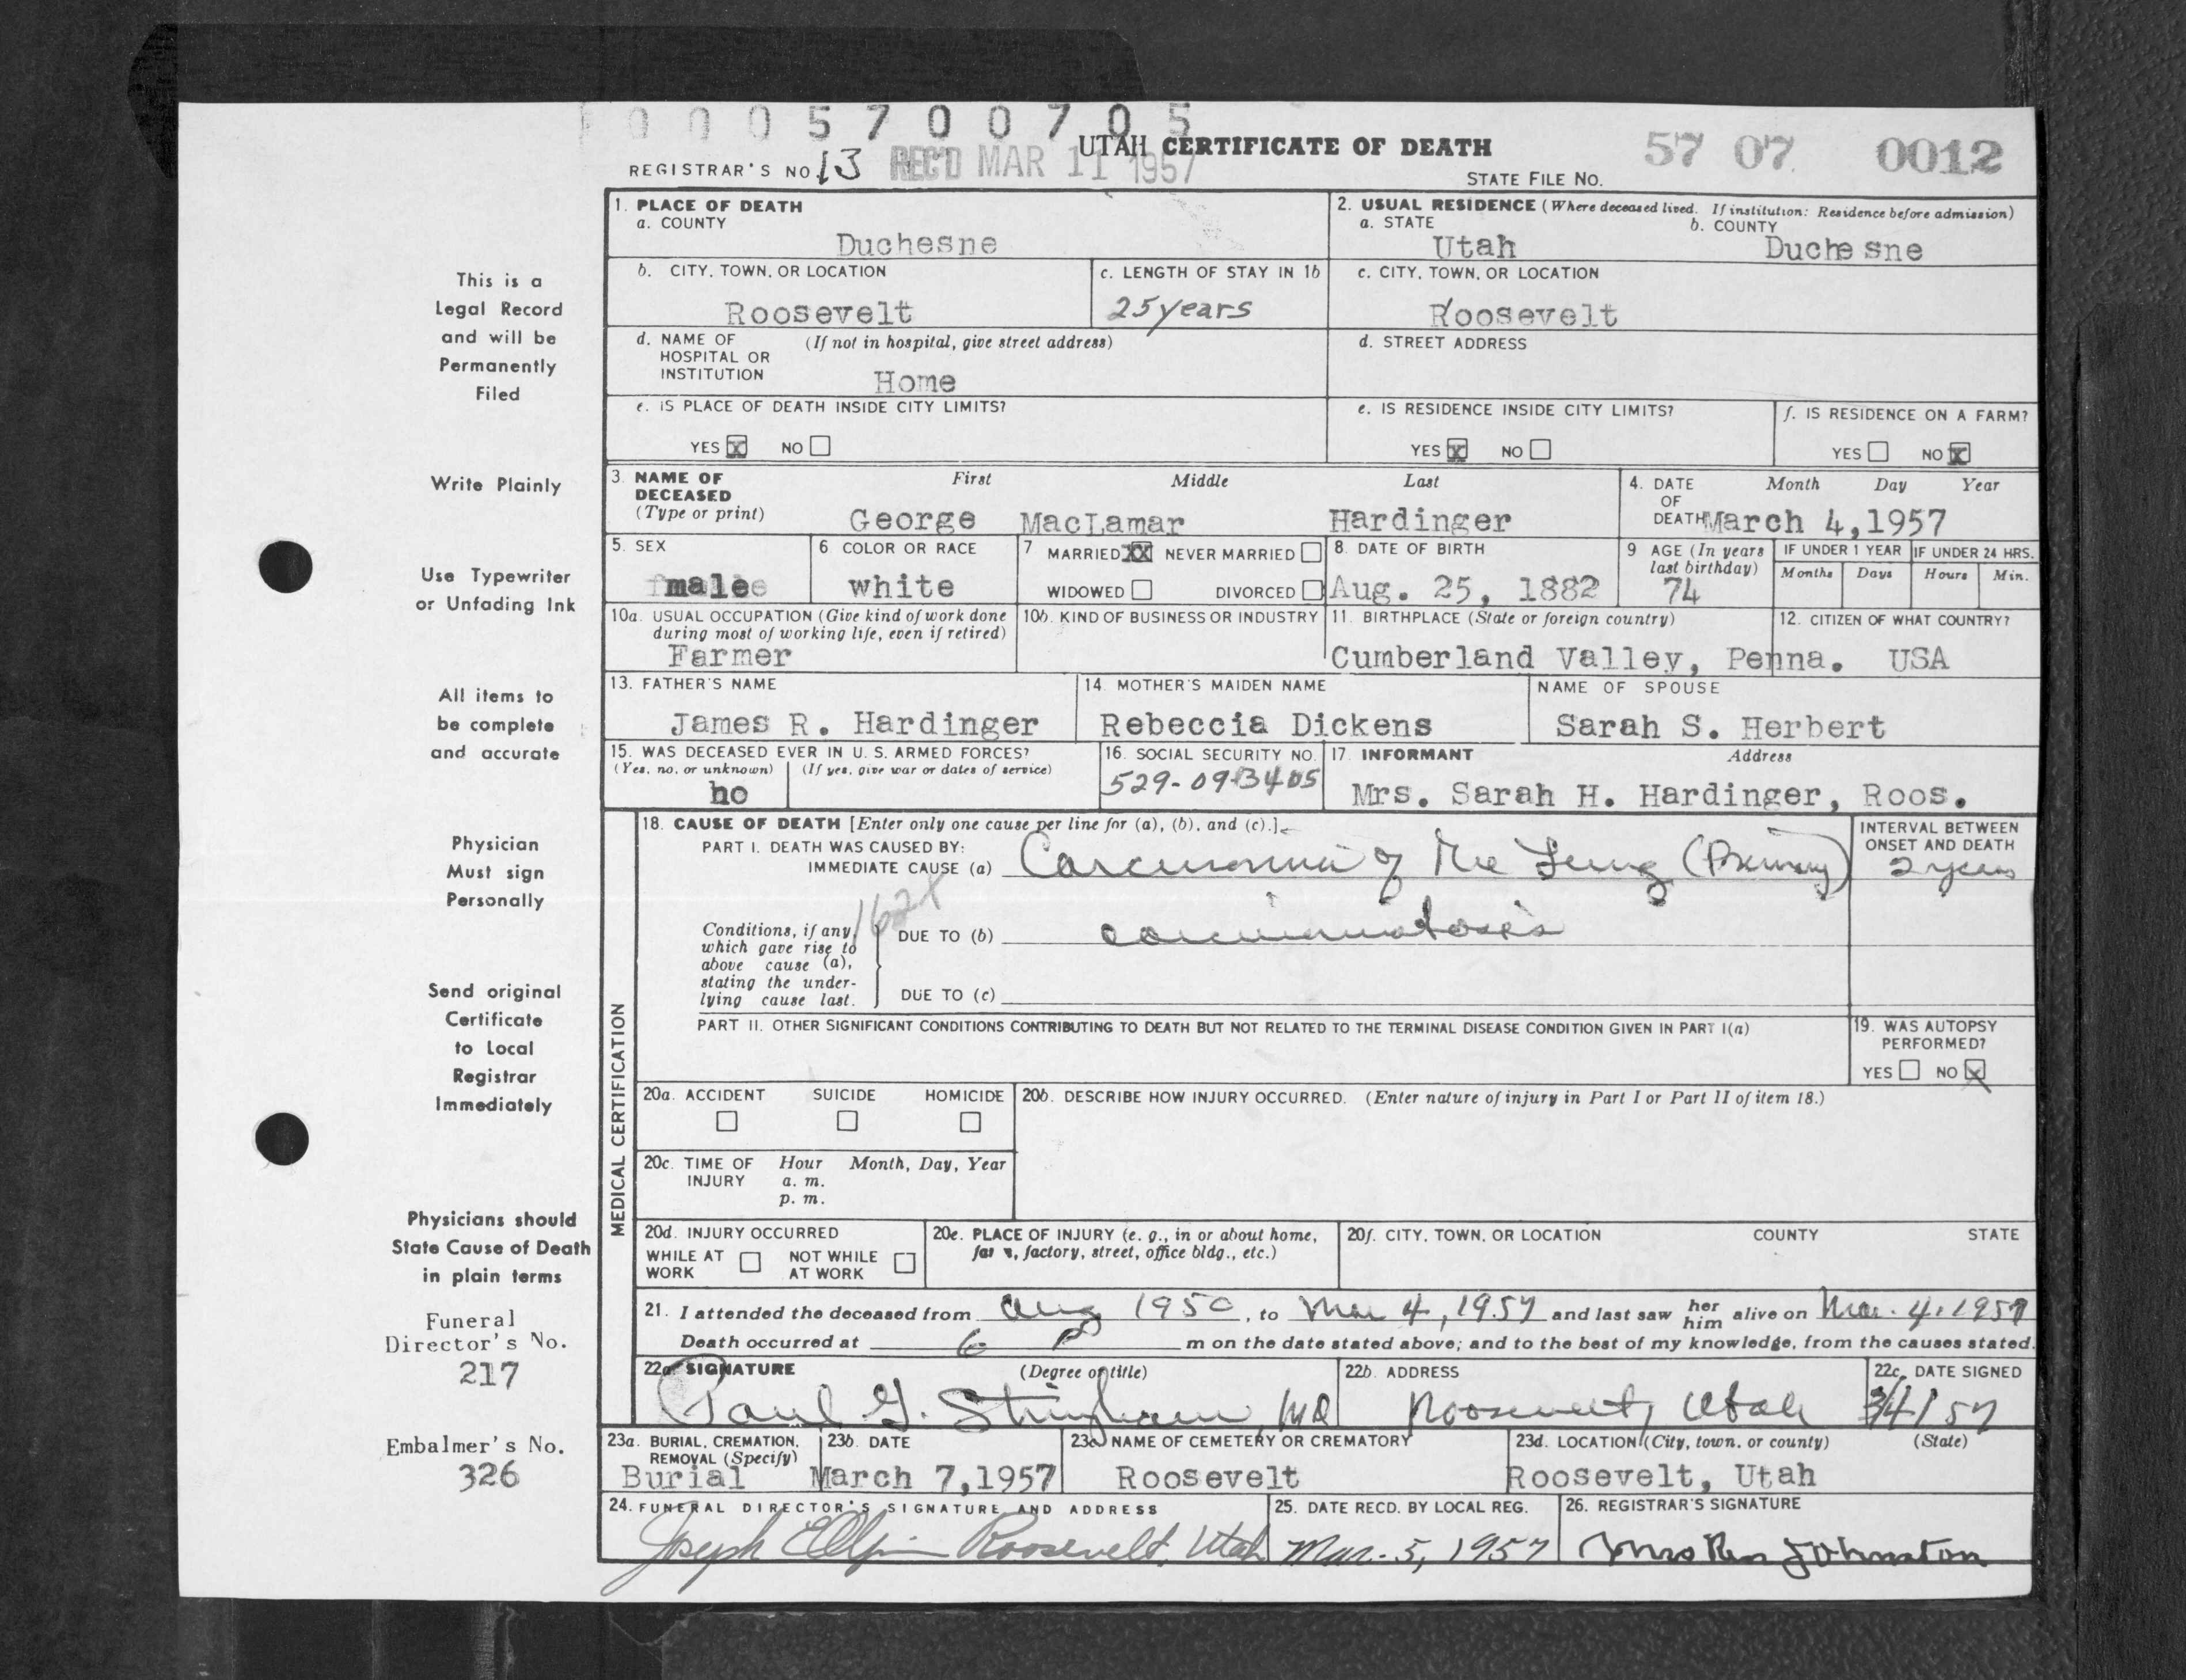 0005700705
UTAH CERTIFICATE OF DEATH
57 07 0012
REGISTRAR'S NO. 13 REC'D MAR 11 1957
STATE FILE NO.
1. PLACE OF DEATH
a. COUNTY
Duchesne
2. USUAL RESIDENCE (Where deceased lived. If institution: Residence before admission)
a. STATE b. COUNTY
Utah Duchesne
b. CITY, TOWN, OR LOCATION
Roosevelt
c. LENGTH OF STAY IN 1b
25 years
c. CITY, TOWN, OR LOCATION
Roosevelt
d. NAME OF HOSPITAL OR INSTITUTION (If not in hospital, give street address)
Home
d. STREET ADDRESS
e. IS PLACE OF DEATH INSIDE CITY LIMITS?
YES X NO
e. IS RESIDENCE INSIDE CITY LIMITS?
YES X NO
f. IS RESIDENCE ON A FARM?
YES NO X
3. NAME OF DECEASED (Type or print)
First Middle Last
George MacLamar Hardinger
4. DATE OF DEATH Month Day Year
March 4, 1957
5. SEX
male
6 COLOR OR RACE
white
7 MARRIED XX NEVER MARRIED
WIDOWED DIVORCED
8. DATE OF BIRTH
Aug. 25, 1882
9 AGE (In years last birthday)
74
IF UNDER 1 YEAR IF UNDER 24 HRS.
Months Days Hours Min.
10a. USUAL OCCUPATION (Give kind of work done during most of working life, even if retired)
Farmer
10b. KIND OF BUSINESS OR INDUSTRY
11. BIRTHPLACE (State or foreign country)
Cumberland Valley, Penna.
12. CITIZEN OF WHAT COUNTRY?
USA
13. FATHER'S NAME
James R. Hardinger
14. MOTHER'S MAIDEN NAME
Rebeccia Dickens
NAME OF SPOUSE
Sarah S. Herbert
15. WAS DECEASED EVER IN U. S. ARMED FORCES?
(Yes, no, or unknown) (If yes, give war or dates of service)
no
16. SOCIAL SECURITY NO.
529-09-3405
17. INFORMANT Address
Mrs. Sarah H. Hardinger, Roos.
MEDICAL CERTIFICATION
18. CAUSE OF DEATH [Enter only one cause per line for (a), (b), and (c).]
PART I. DEATH WAS CAUSED BY:
IMMEDIATE CAUSE (a) Carcinoma of the Lung (Primary)
INTERVAL BETWEEN ONSET AND DEATH
2 years
Conditions, if any, which gave rise to above cause (a), stating the underlying cause last.
DUE TO (b) carcinomatosis
DUE TO (c)
PART II. OTHER SIGNIFICANT CONDITIONS CONTRIBUTING TO DEATH BUT NOT RELATED TO THE TERMINAL DISEASE CONDITION GIVEN IN PART I(a)
19. WAS AUTOPSY PERFORMED?
YES NO X
20a. ACCIDENT SUICIDE HOMICIDE
20b. DESCRIBE HOW INJURY OCCURRED. (Enter nature of injury in Part I or Part II of item 18.)
20c. TIME OF INJURY Hour Month, Day, Year
a. m.
p. m.
20d. INJURY OCCURRED
WHILE AT WORK NOT WHILE AT WORK
20e. PLACE OF INJURY (e. g., in or about home, farm, factory, street, office bldg., etc.)
20f. CITY, TOWN, OR LOCATION COUNTY STATE
21. I attended the deceased from Aug 1950, to Mar 4, 1957 and last saw her him alive on Mar. 4, 1957
Death occurred at 6 P m on the date stated above; and to the best of my knowledge, from the causes stated.
22a. SIGNATURE (Degree or title)
Paul G. Stringham, MD
22b. ADDRESS
Roosevelt, Utah
22c. DATE SIGNED
3/4/57
23a. BURIAL, CREMATION, REMOVAL (Specify)
Burial
23b. DATE
March 7, 1957
23c. NAME OF CEMETERY OR CREMATORY
Roosevelt
23d. LOCATION (City, town, or county) (State)
Roosevelt, Utah
24. FUNERAL DIRECTOR'S SIGNATURE AND ADDRESS
Joseph Roosevelt, Utah
25. DATE RECD. BY LOCAL REG.
Mar. 5, 1957
26. REGISTRAR'S SIGNATURE
Mrs Johnston
This is a
Legal Record
and will be
Permanently
Filed
Write Plainly
Use Typewriter
or Unfading Ink
All items to
be complete
and accurate
Physician
Must sign
Personally
Send original
Certificate
to Local
Registrar
Immediately
Physicians should
State Cause of Death
in plain terms
Funeral
Director's No.
217
Embalmer's No.
326